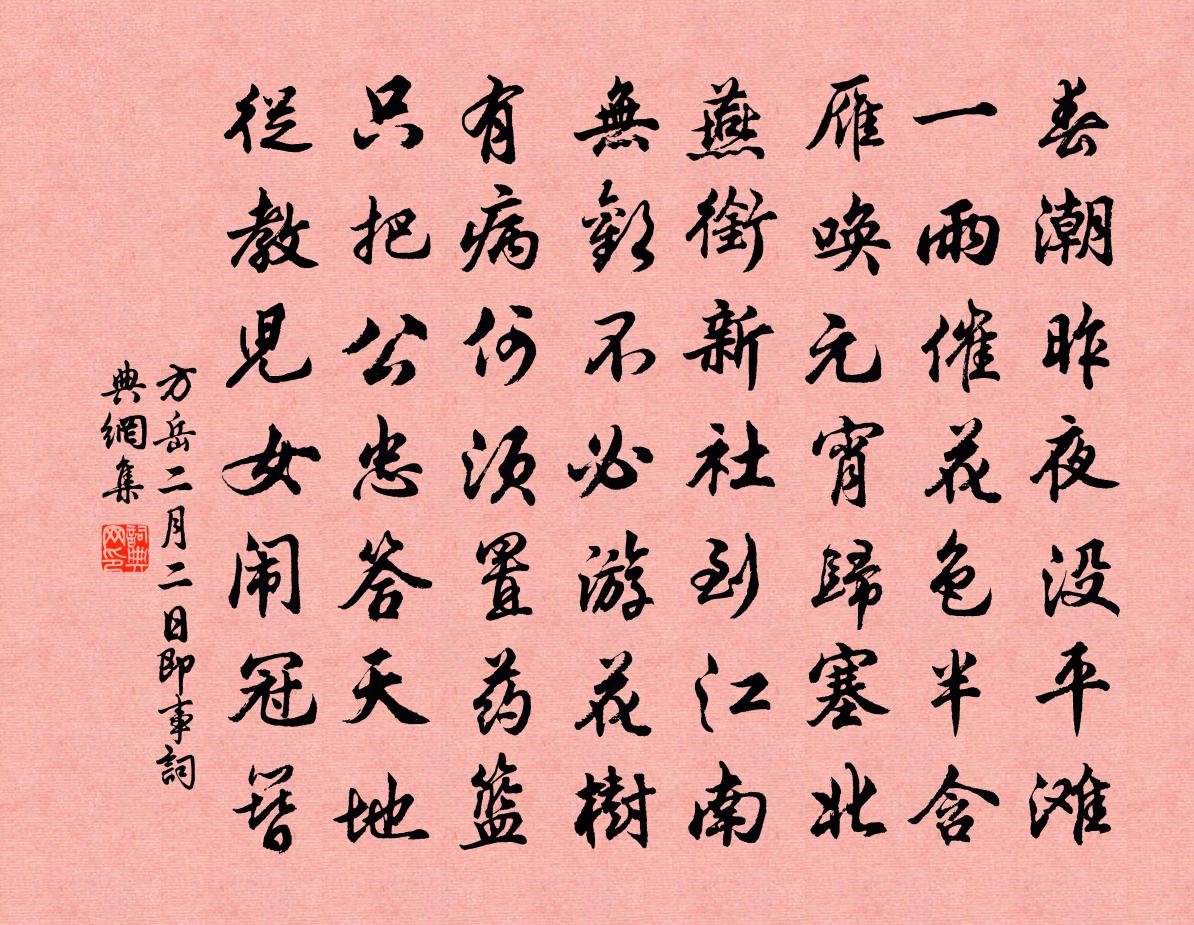 春潮昨夜没平滩
一雨催花色半含
雁唤元宵歸塞北
燕銜新社到江南
無歡不必游花樹
有病何须置药籃
只把公忠答天地
從教児女闹冠簪
方岳二月二日即事詞
典網集
詞典网印